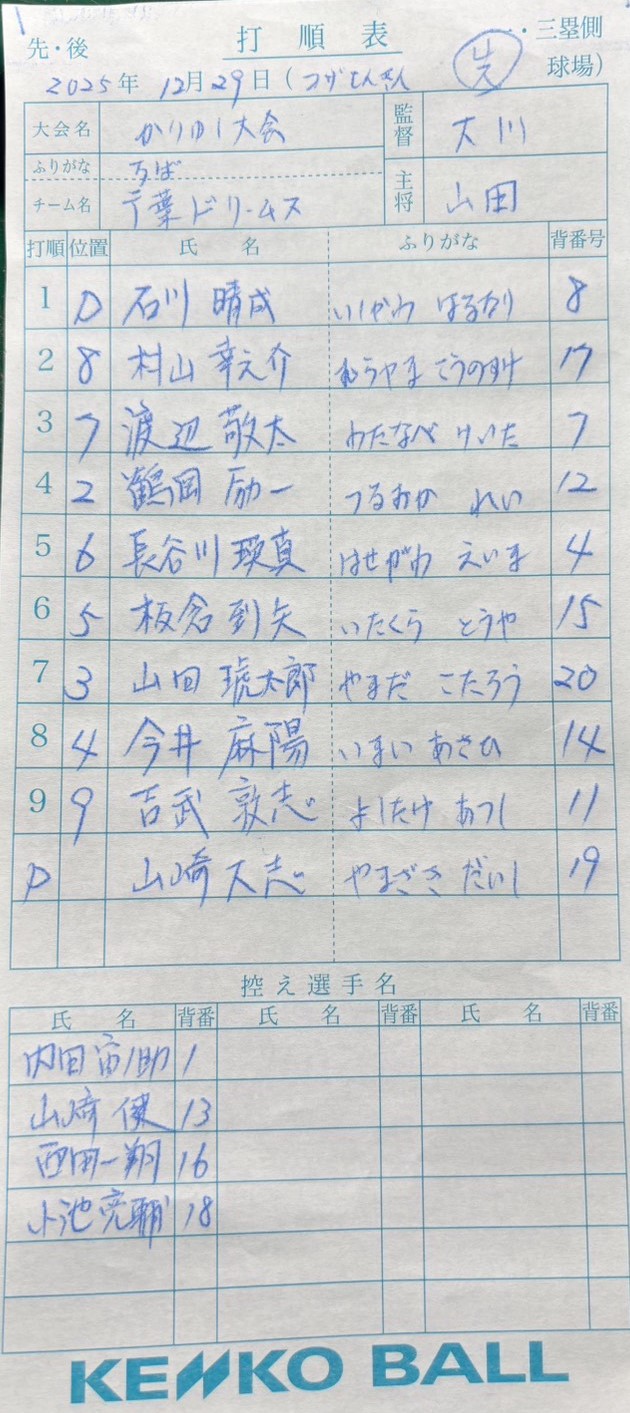 打順表
先・後 ・・三塁側
2025年 12月29日( 先 球場)
大会名 かりゆし大会 監督 大川
ふりがな ちば
チーム名 千葉ドリームス 主将 山田
打順 位置 氏名 ふりがな 背番号
1 D 石川 晴成 いしかわ はるなり 8
2 8 村山 幸之介 むらやま こうのすけ 17
3 7 渡辺 敬太 わたなべ けいた 7
4 2 鶴岡 励一 つるおか れい 12
5 6 長谷川 瑛真 はせがわ えいま 4
6 5 板倉 到矢 いたくら とうや 15
7 3 山田 琥太郎 やまだ こたろう 20
8 4 今井 麻陽 いまい あさひ 14
9 9 吉武 敦志 よしたけ あつし 11
P 山崎 大志 やまざき だいし 19
控え選手名
氏名 背番 氏名 背番 氏名 背番
内田宙助 1
山崎 健 13
西田一翔 16
小池亮輔 18
KENKO BALL